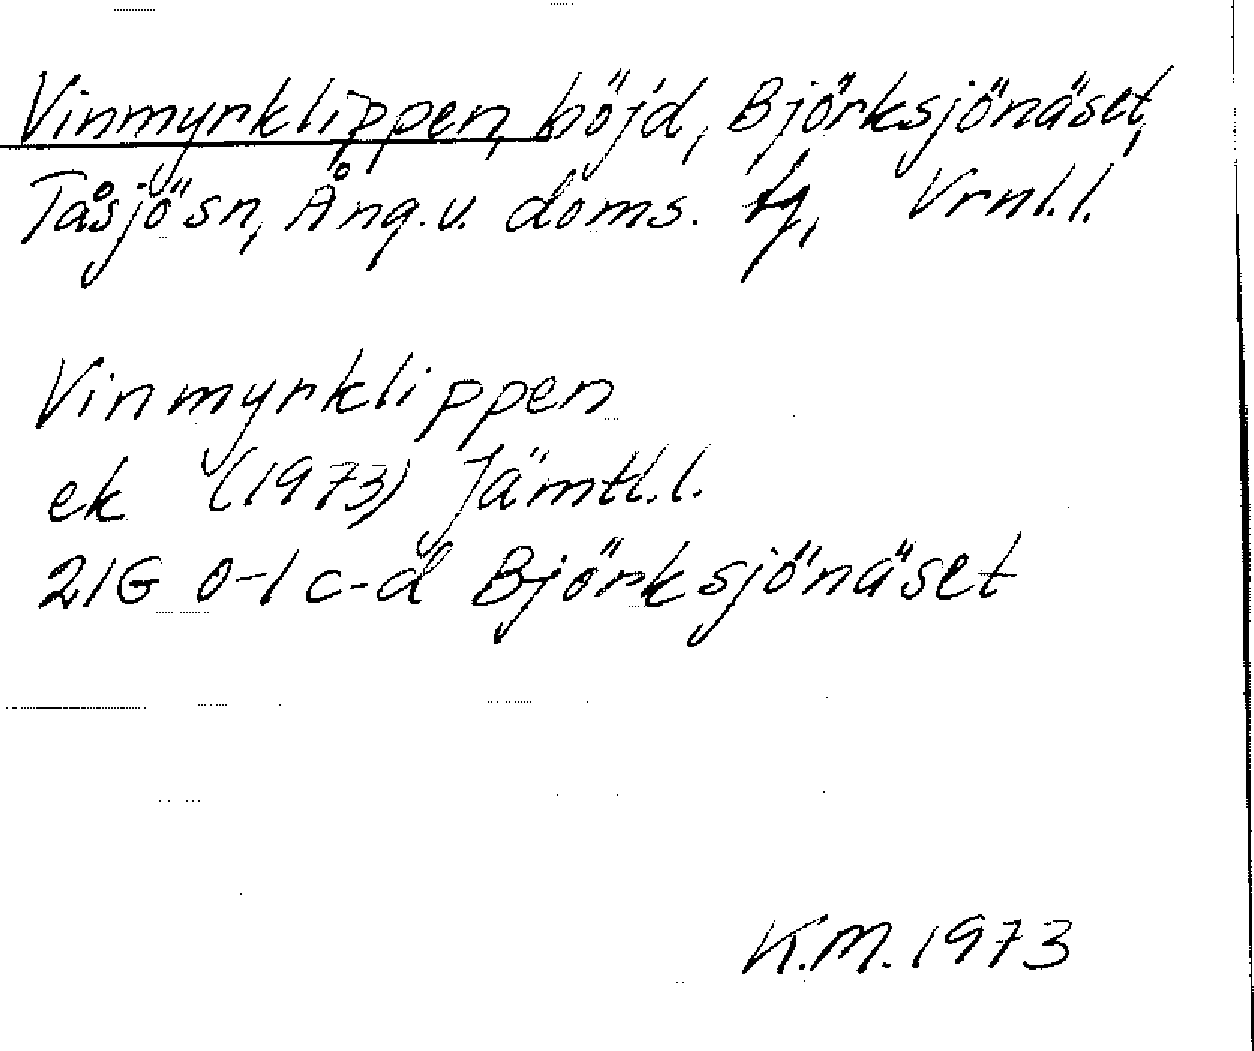 Vinmyrklippen, höjd, Björksjönäset,
Tåsjö sn, Ång. v. doms. tg, Vrnl.l.
Vinmyrklippen
ek (1973) Jämtl.l.
21G 0-1 c-d Björksjönäset
K.M. 1973